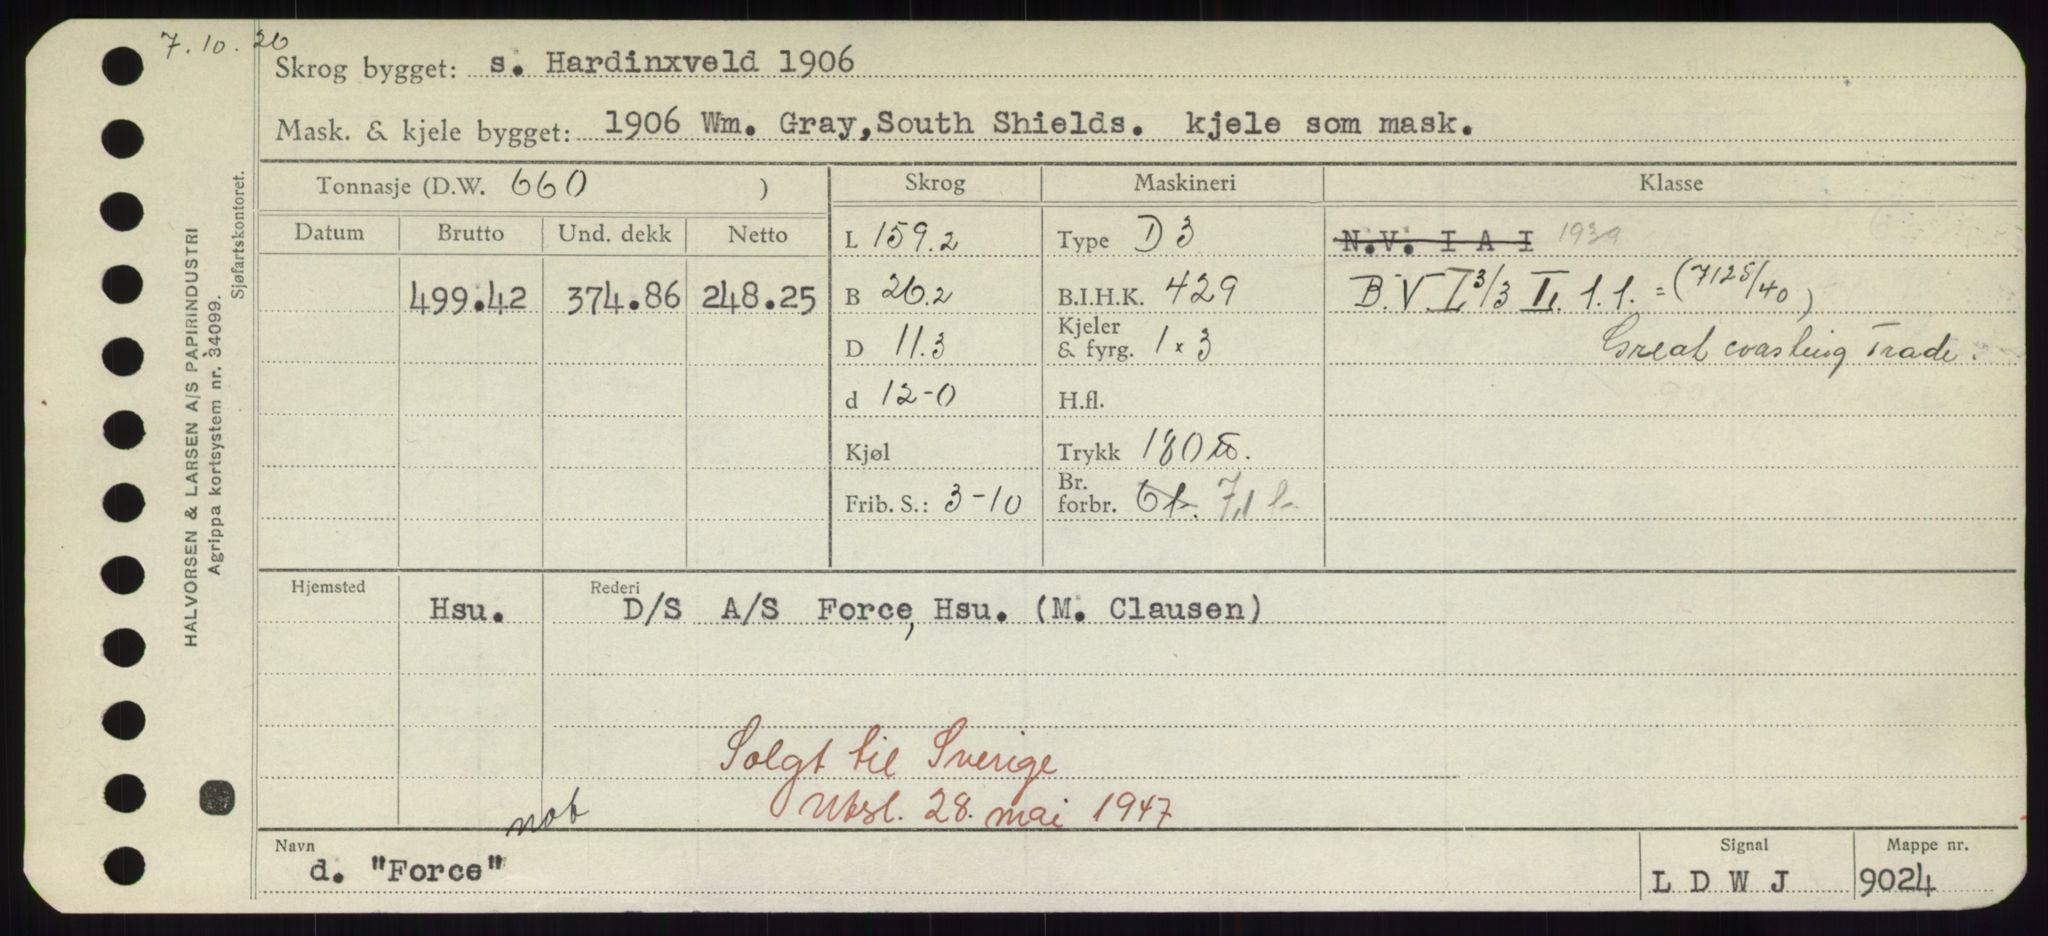 7.10.26
Skrog bygget: s. Hardinxveld 1906
Mask. & kjele bygget: 1906 Wm. Gray, South Shields. kjele som mask.
Tonnasje (D.W. 660 )
Skrog
Maskineri
Klasse
Datum Brutto Und. dekk Netto
499.42 374.86 248.25
L 159.2
B 26.2
D 11.3
d 12-0
Kjøl
Frib. S.: 3-10
Type D 3
B.I.H.K. 429
Kjeler
& fyrg. 1 x 3
H.fl.
Trykk 180 lb.
Br.
forbr. 6 t. 7,1 t.
N.V. I A I 1939
B.V. I 3/3 II. 1.1. = (7125/40)
Great coasting Trade.
Hjemsted Rederi
Hsu. D/S A/S Force, Hsu. (M. Clausen)
Solgt til Sverige
Utsl. 28. mai 1947
nob
Navn
d. "Force"
Signal
L D W J
Mappe nr.
9024
HALVORSEN & LARSEN A/S PAPIRINDUSTRI
Agrippa kortsystem nr. 34099.
Sjøfartskontoret.